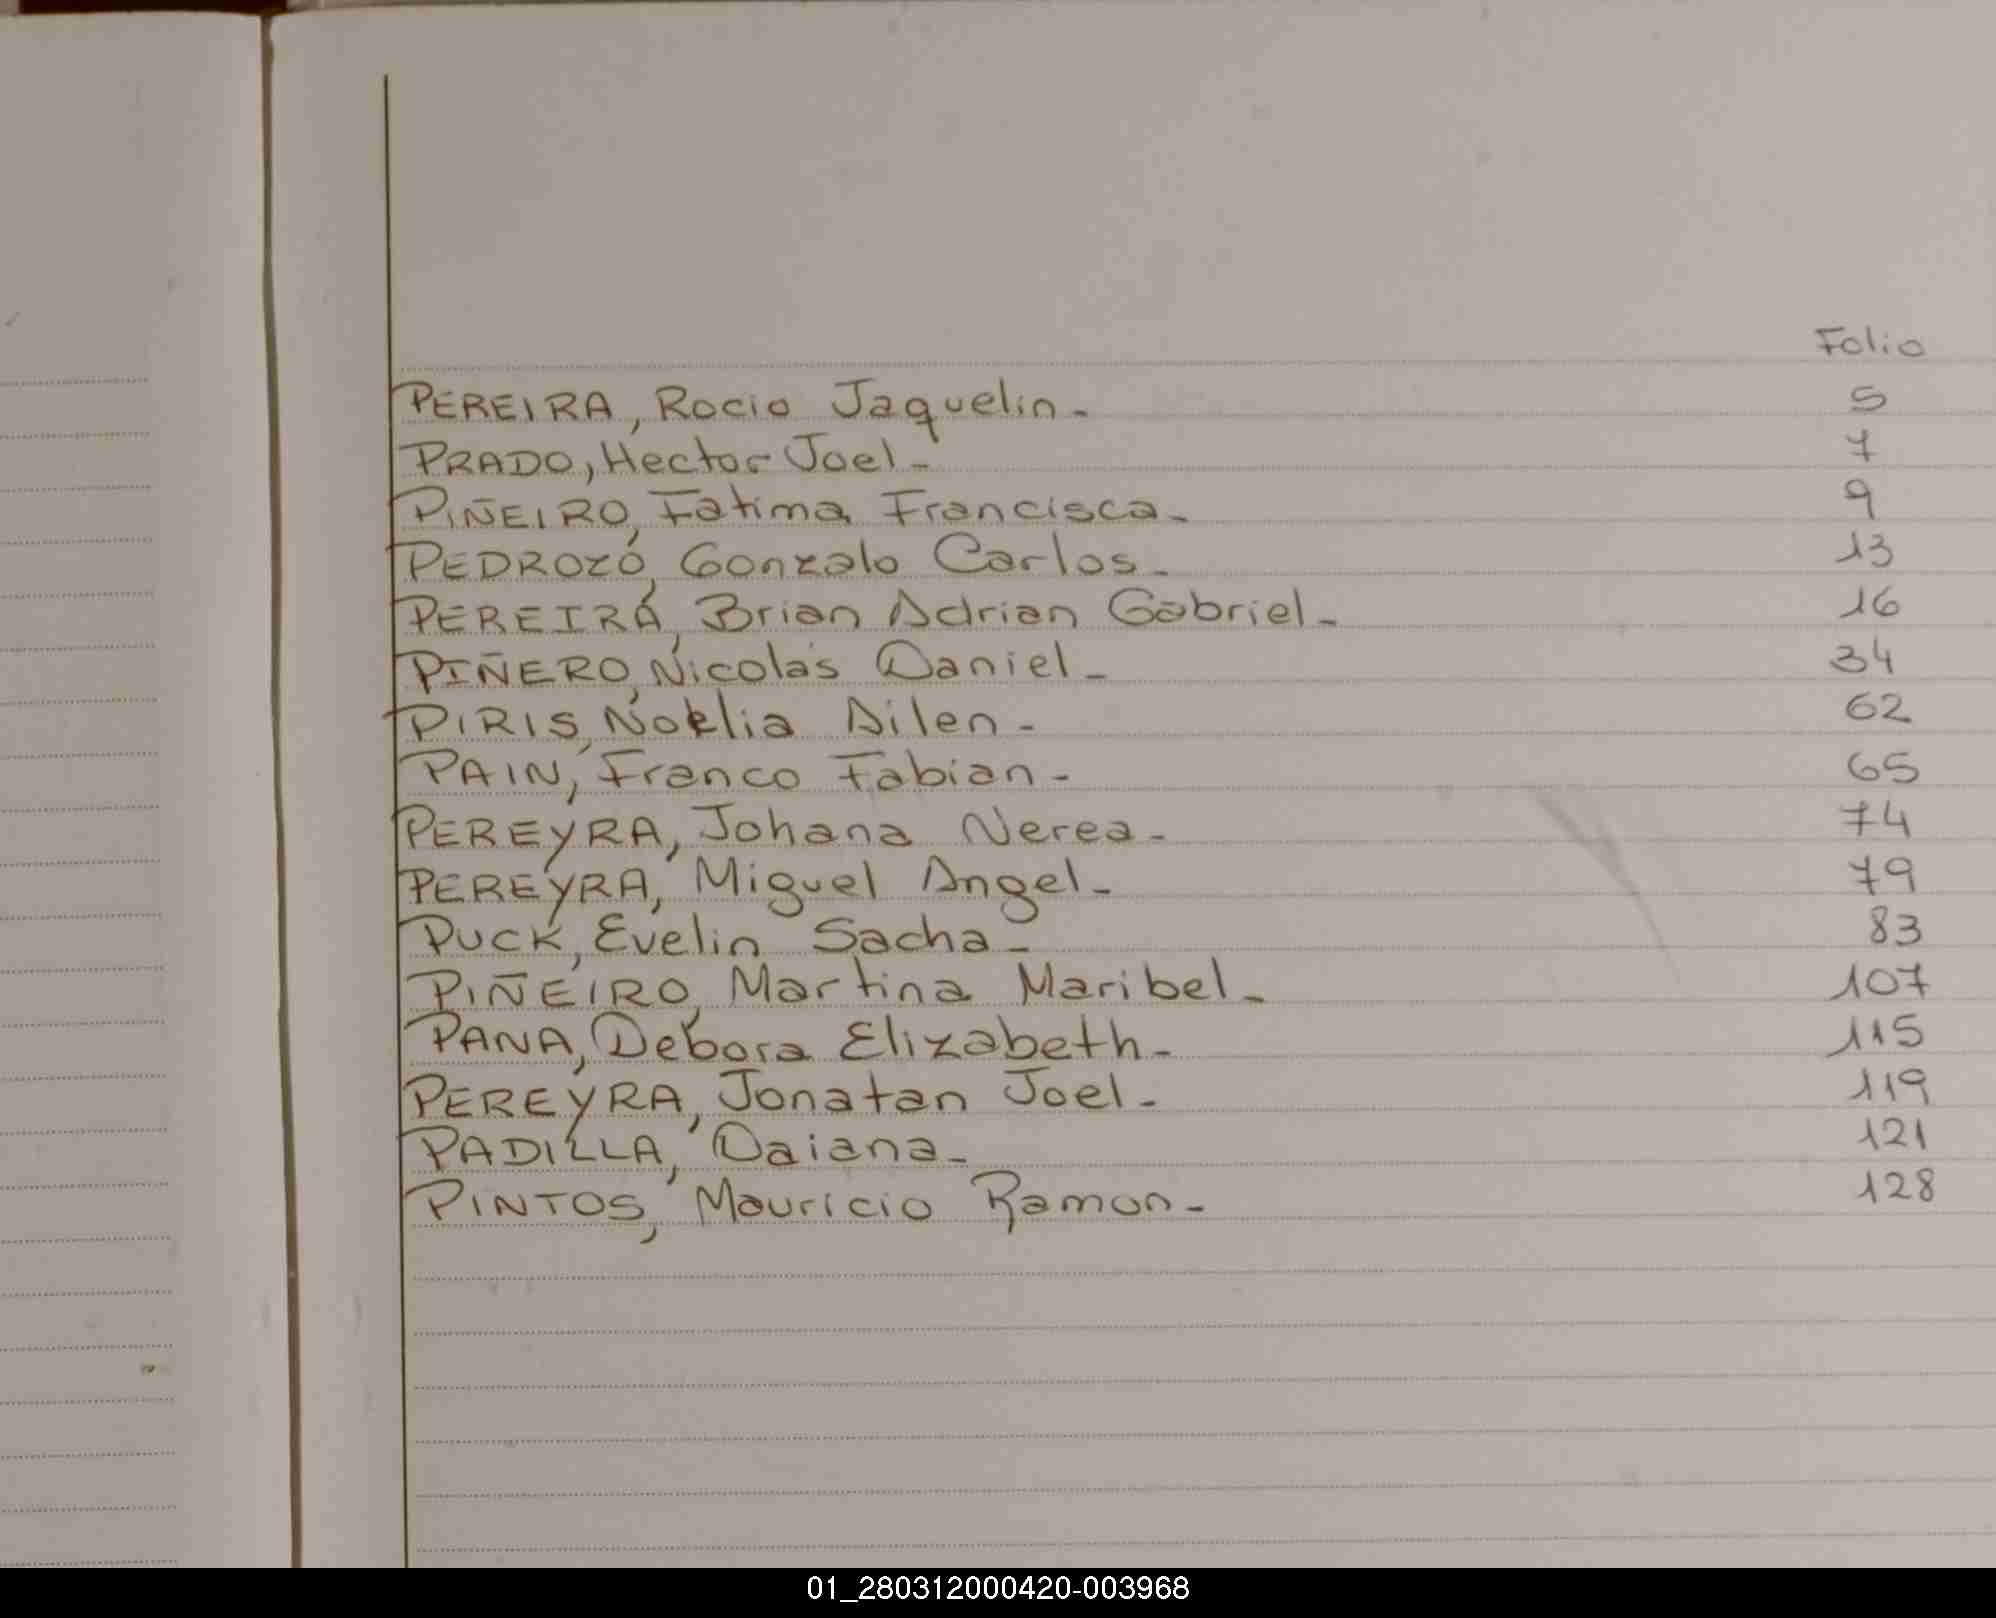 Folio
PEREIRA, Rocio Jaquelin- 5
PRADO, Hector Joel- 7
PIÑEIRO, Fatima Francisca- 9
PEDROZO, Gonzalo Carlos- 13
PEREIRA, Brian Adrian Gabriel- 16
PIÑERO, Nicolás Daniel- 34
PIRIS, Ailen- 62
PAIN, Franco Fabian- 65
PEREYRA, Johana Nerea- 74
PEREYRA, Miguel Angel- 79
PUCK, Evelin Sacha- 83
PIÑEIRO, Martina Maribel- 107
PANA, Debora Elizabeth- 115
PEREYRA, Jonatan Joel- 119
PADILLA, Daiana- 121
PINTOS, Mauricio Ramon- 128
01_280312000420-003968